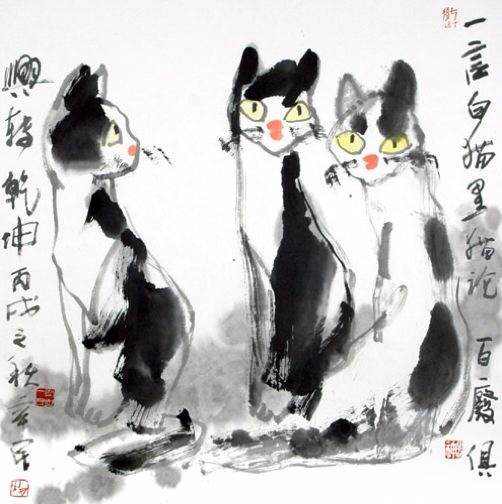 一言白猫黑猫论百廢俱
興转乾坤丙戌之秋